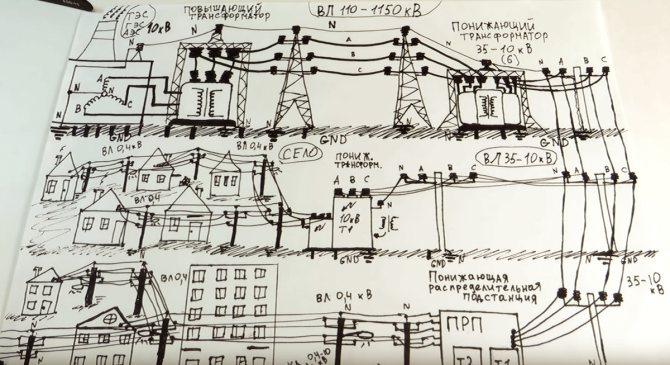 ТЭС
ГЭС
АЭС
10кВ
ПОВЫШАЮЩИЙ
ТРАНСФОРМАТОР
ВЛ 110-1150кВ
ПОНИЖАЮЩИЙ
ТРАНСФОРМАТОР
35-10 кВ
(6)
N
N
N
A
B
C
N
A
B
C
A
N
N
B
C
GND
GND
GND
ВЛ 0,4кВ
ВЛ 0,4кВ
СЕЛО
ПОНИЖ.
ТРАНСФОРМ.
ВЛ 35-10кВ
A B C
N A B C
N A B C
ВЛ 0,4
10кВ
Т1
GND
GND
N
GND
ВЛ 0,4
ВЛ 0,4 кВ
Понижающая
распределительная
подстанция
35-10
кВ
ПРП
N
N
N
Т2
Т1
0,4-10
кВ